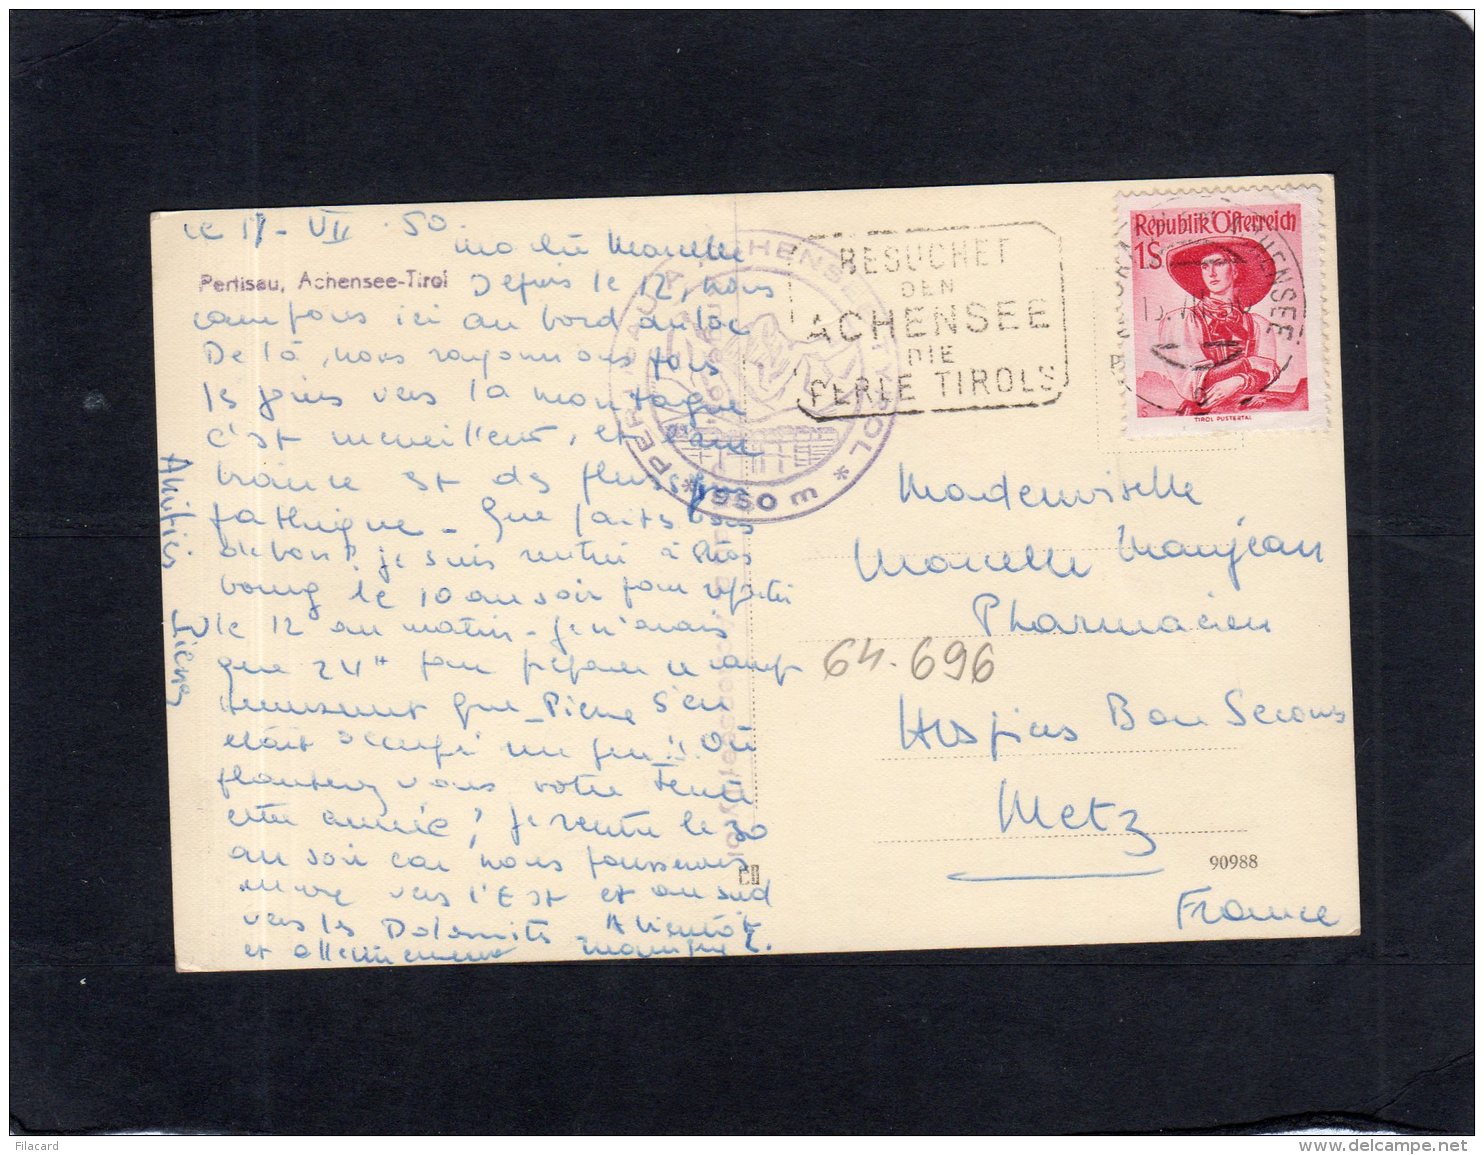 le 17-VII.50
ma chère Marcelle
Pertisau, Achensee-Tirol
Depuis le 12, nous
campons ici au bord du lac
De là, nous rayonnons tous
les jours vers la montagne
c'est merveilleux, et l'am
biance est des plus sym
pathique - Que faites vous
de bon? je suis rentré à Stras
bourg le 10 au soir pour repartir
le 12 au matin - je n'avais
que 24H pour préparer ce camp
heureusement que Pierre s'en
était occupé un peu!! Où
planterez vous votre tente
cette année? je rentre le 30
au soir car nous pousserons
encore vers l'Est et au sud
vers les Dolomites A bientôt
et
Amitiés Pierre
SPERR PERTISAU A. ACHENSEE TYROL
* 950 m *
BESUCHET
DEN
ACHENSEE
DIE
PERLE TIROLS
Republik Österreich
1S
TIROL PUSTERTAL
ACHENSEE
Mademoiselle
Marcelle Manjean
Pharmacien
64.696
Hospices Bon Secours
Metz
90988
France
Filacard
www.delcampe.net